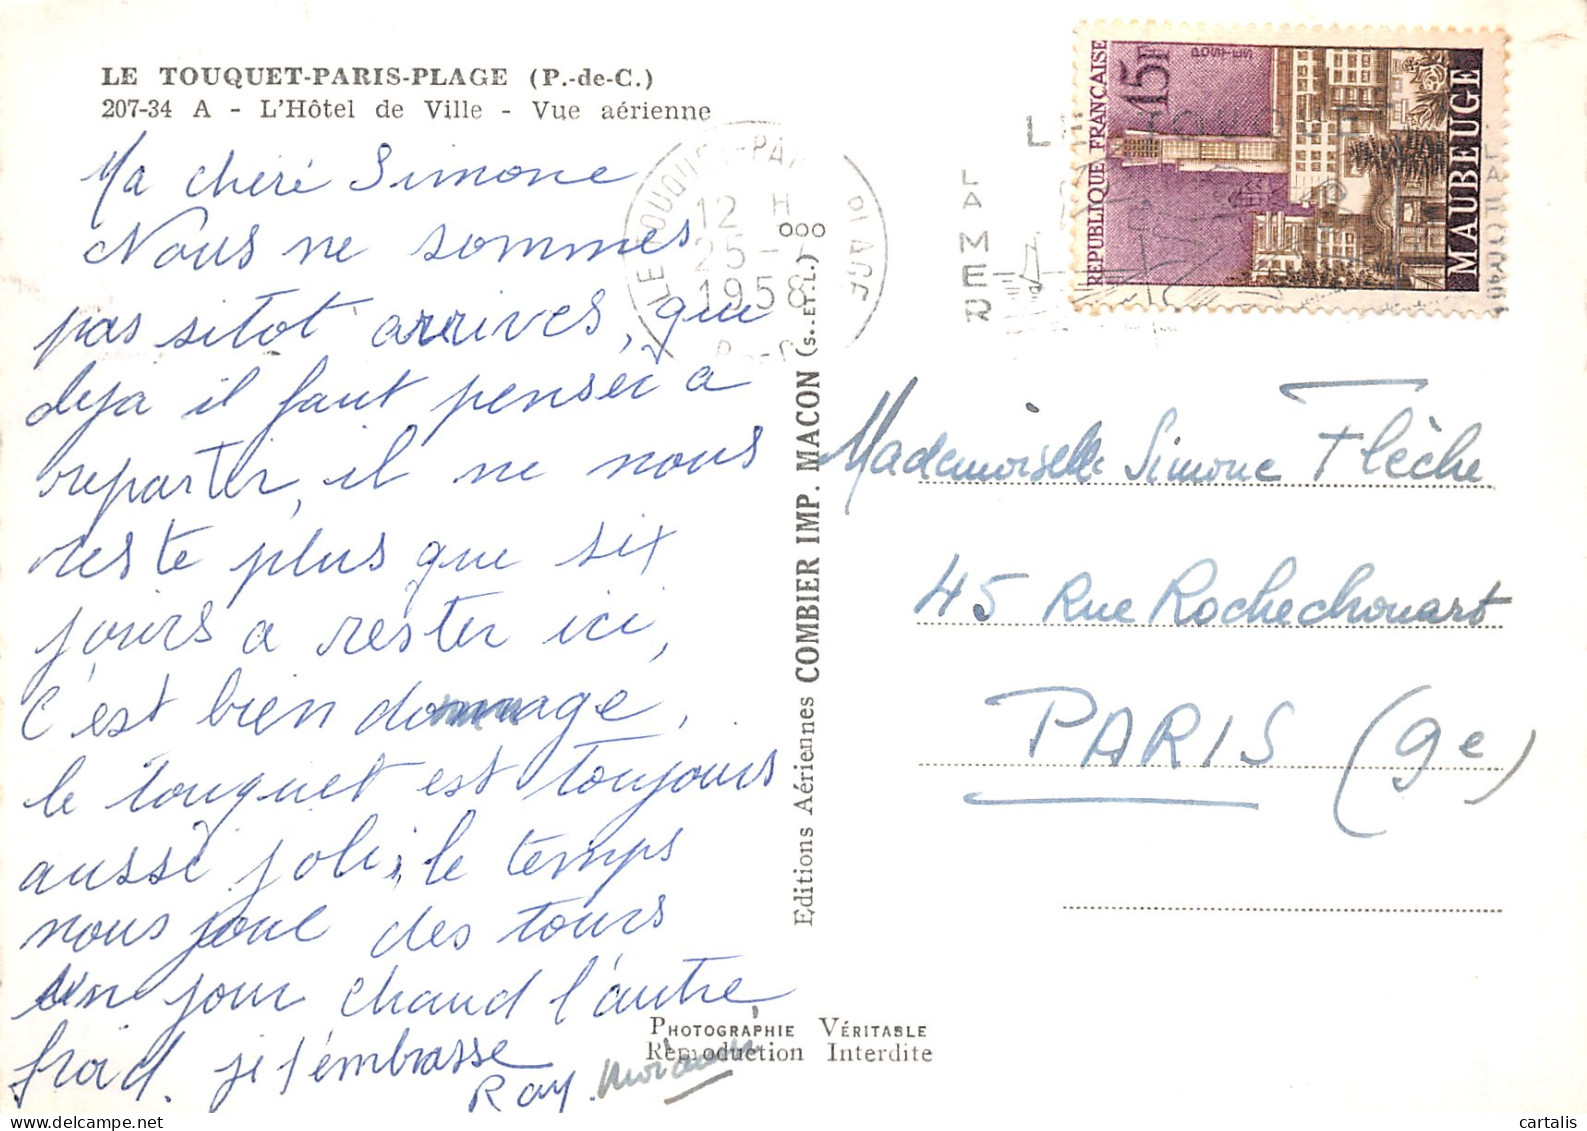 LE TOUQUET-PARIS-PLAGE (P.-de-C.)
207-34 A - L'Hôtel de Ville - Vue aérienne
Ma cheré Simone
Nous ne sommes
pas sitot arrives, que
deja il faut penser a
repartir, il ne nous
reste plus que six
jours a rester ici,
c'est bien dommage,
le touquet est toujours
aussi joli, le temps
nous joue des tours
un jour chaud l'autre
froid. je t'embrasse
Ray.
Editions Aériennes COMBIER IMP. MACON (S. ET L.)
PHOTOGRAPHIE VÉRITABLE
Reproduction Interdite
LE TOUQUET-PARIS PLAGE
12 H
25 -
1958
LA MER
REPUBLIQUE FRANÇAISE
15F
POSTES
MAUBEUGE
Mademoiselle Simone Flèche
45 Rue Rochechouart
PARIS (9e)
cartalis